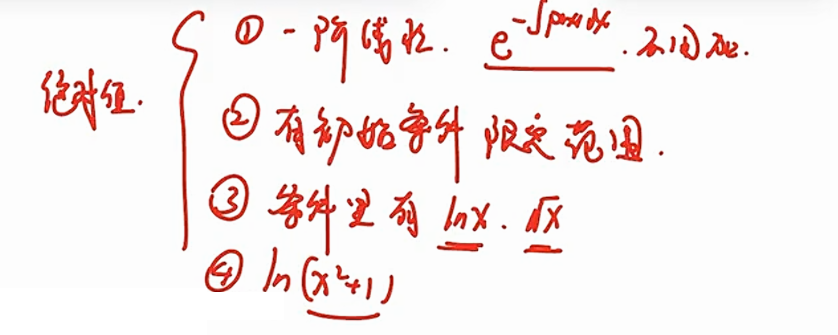 ① 一阶线性. e^{-∫p(x)dx}. 不用加.
绝对值.
② 有初始条件 限定范围.
③ 条件里有 lnx. √x
④ ln(x²+1)